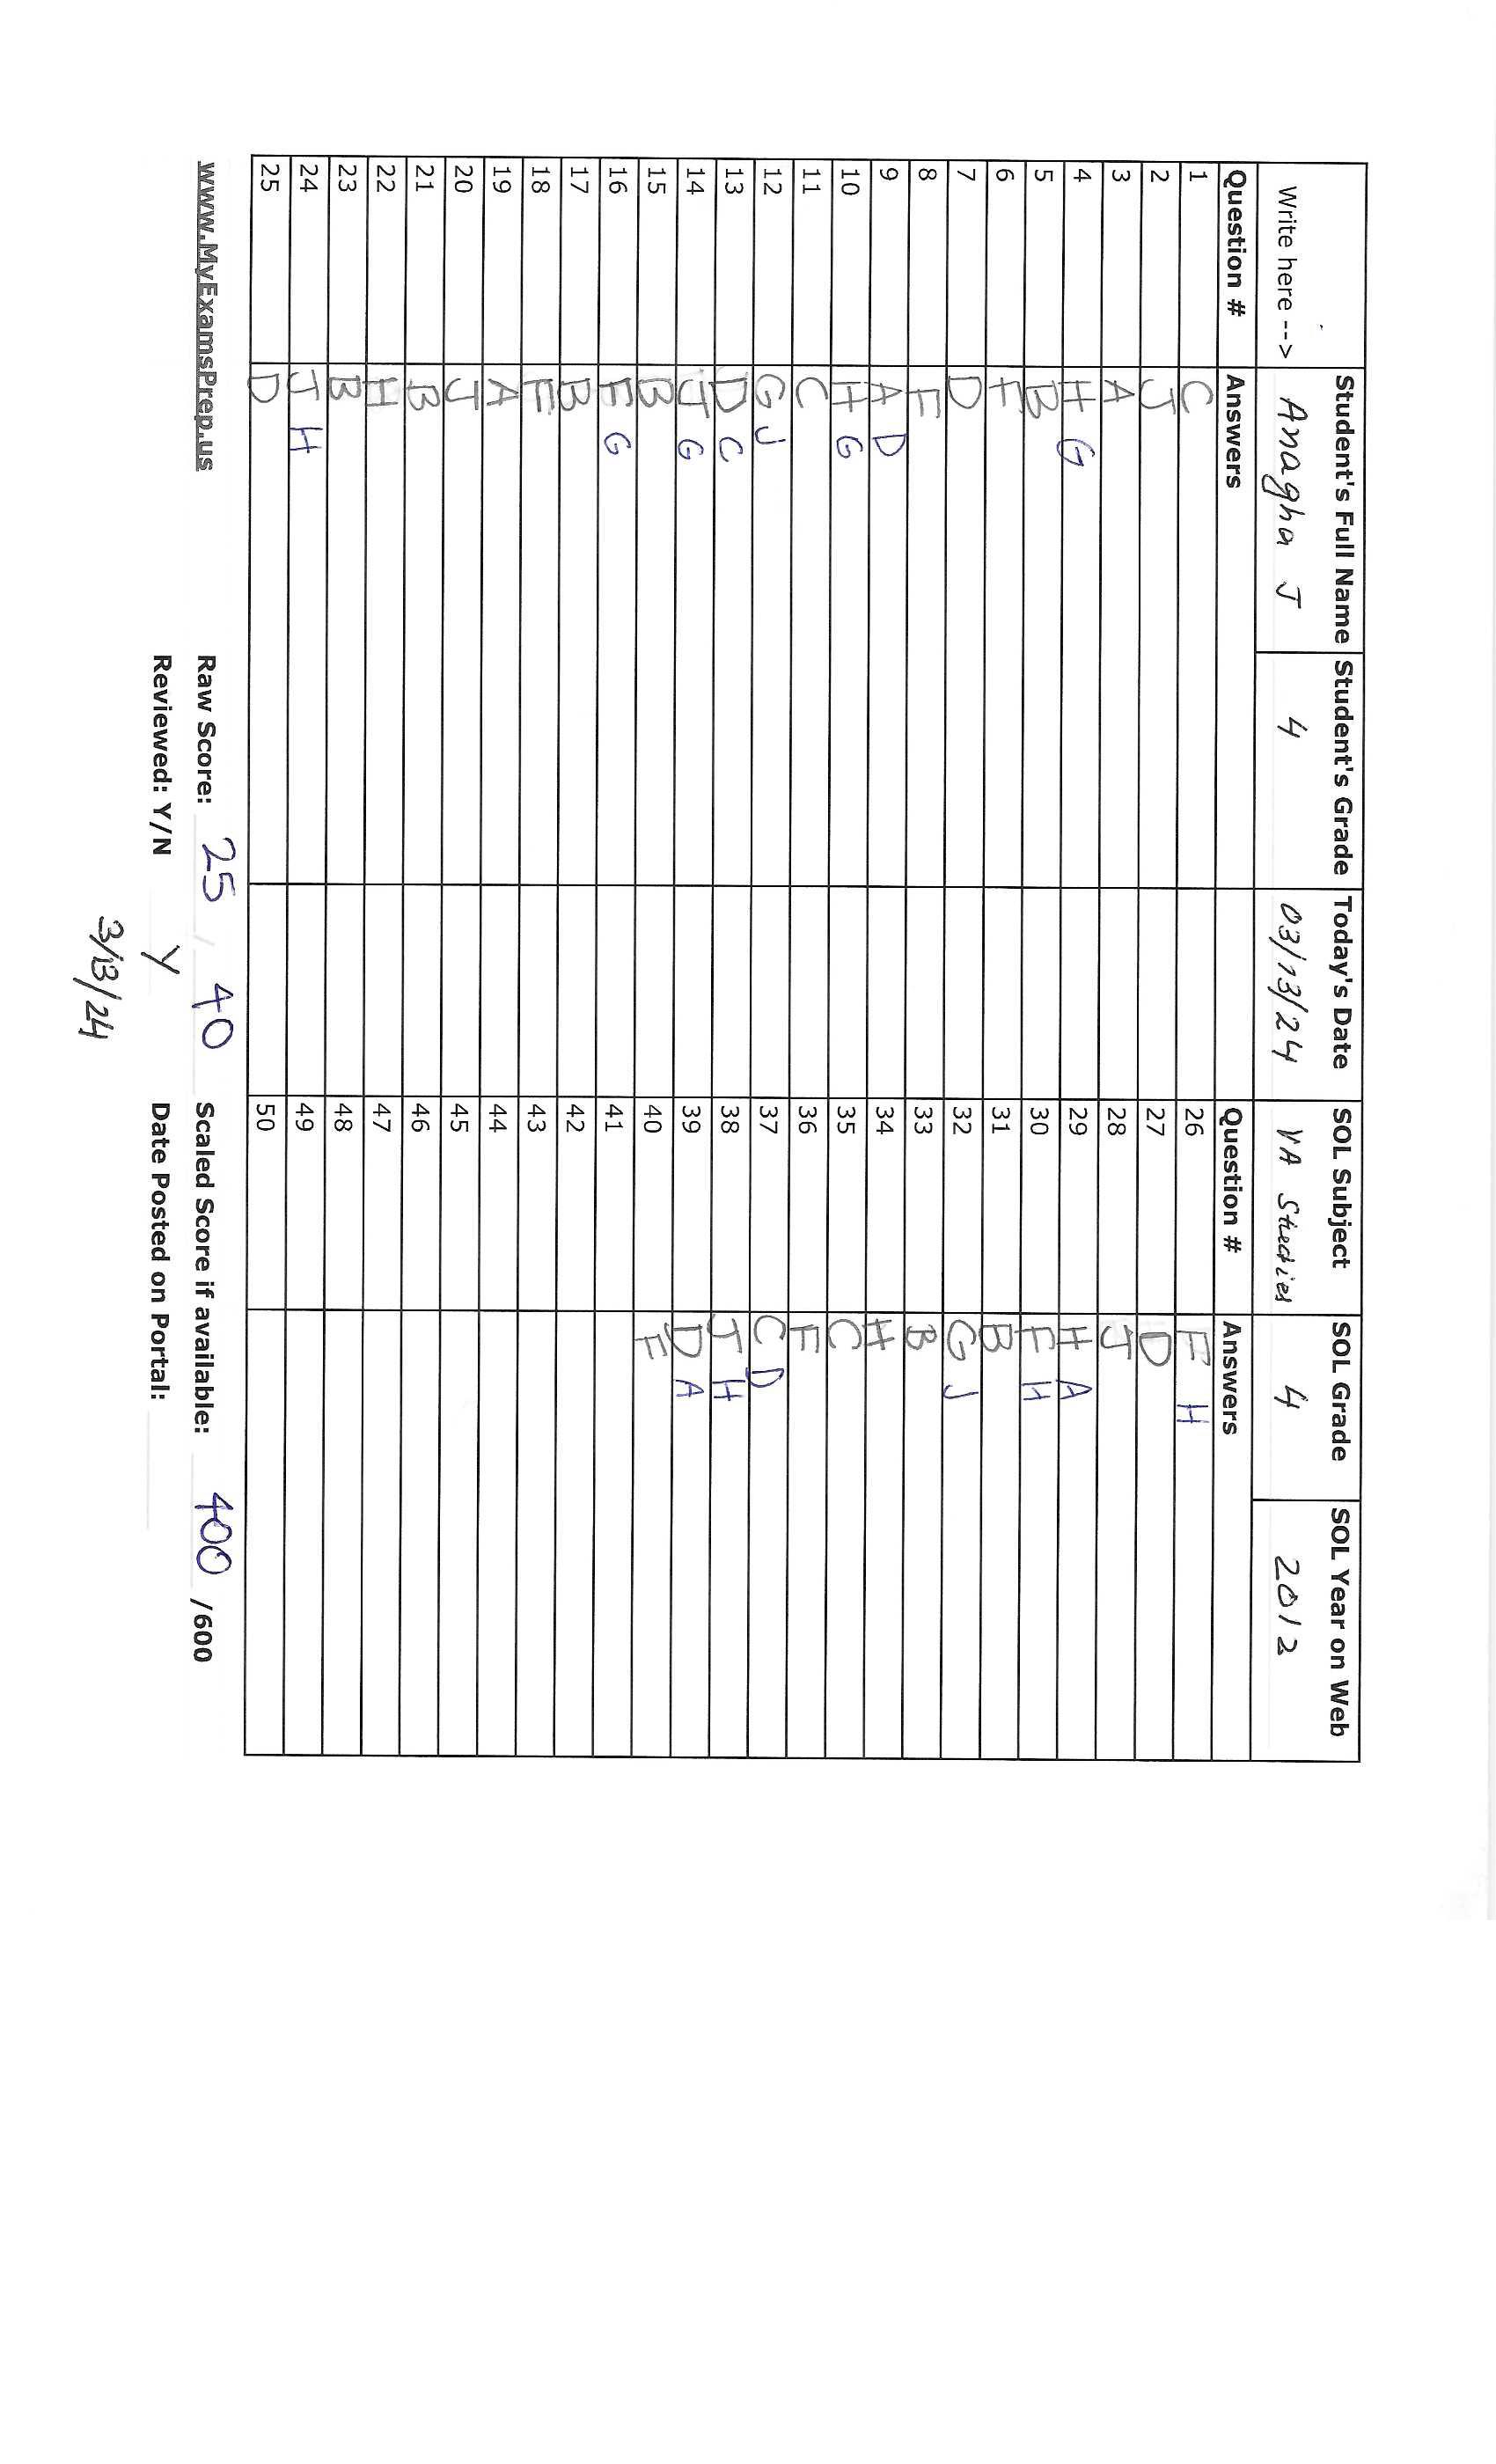 Student's Full Name Student's Grade Today's Date SOL Subject SOL Grade SOL Year on Web
Write here --> Anagha J 4 03/13/24 VA Studies 4 2012
Question # Answers Question # Answers
1 C 26 F H
2 J 27 D
3 A 28 J
4 H G 29 H A
5 B 30 F H
6 F 31 B
7 D 32 G J
8 F 33 B
9 A D 34 H
10 H G 35 C
11 C 36 F
12 G J 37 C D
13 D C 38 J H
14 J G 39 D A
15 B 40 F
16 F G 41
17 B 42
18 F 43
19 A 44
20 J 45
21 B 46
22 H 47
23 B 48
24 J H 49
25 D 50
www.MyExamsPrep.us Raw Score: 25 / 40 Scaled Score if available: 400 /600
Reviewed: Y/N Y Date Posted on Portal:
3/13/24